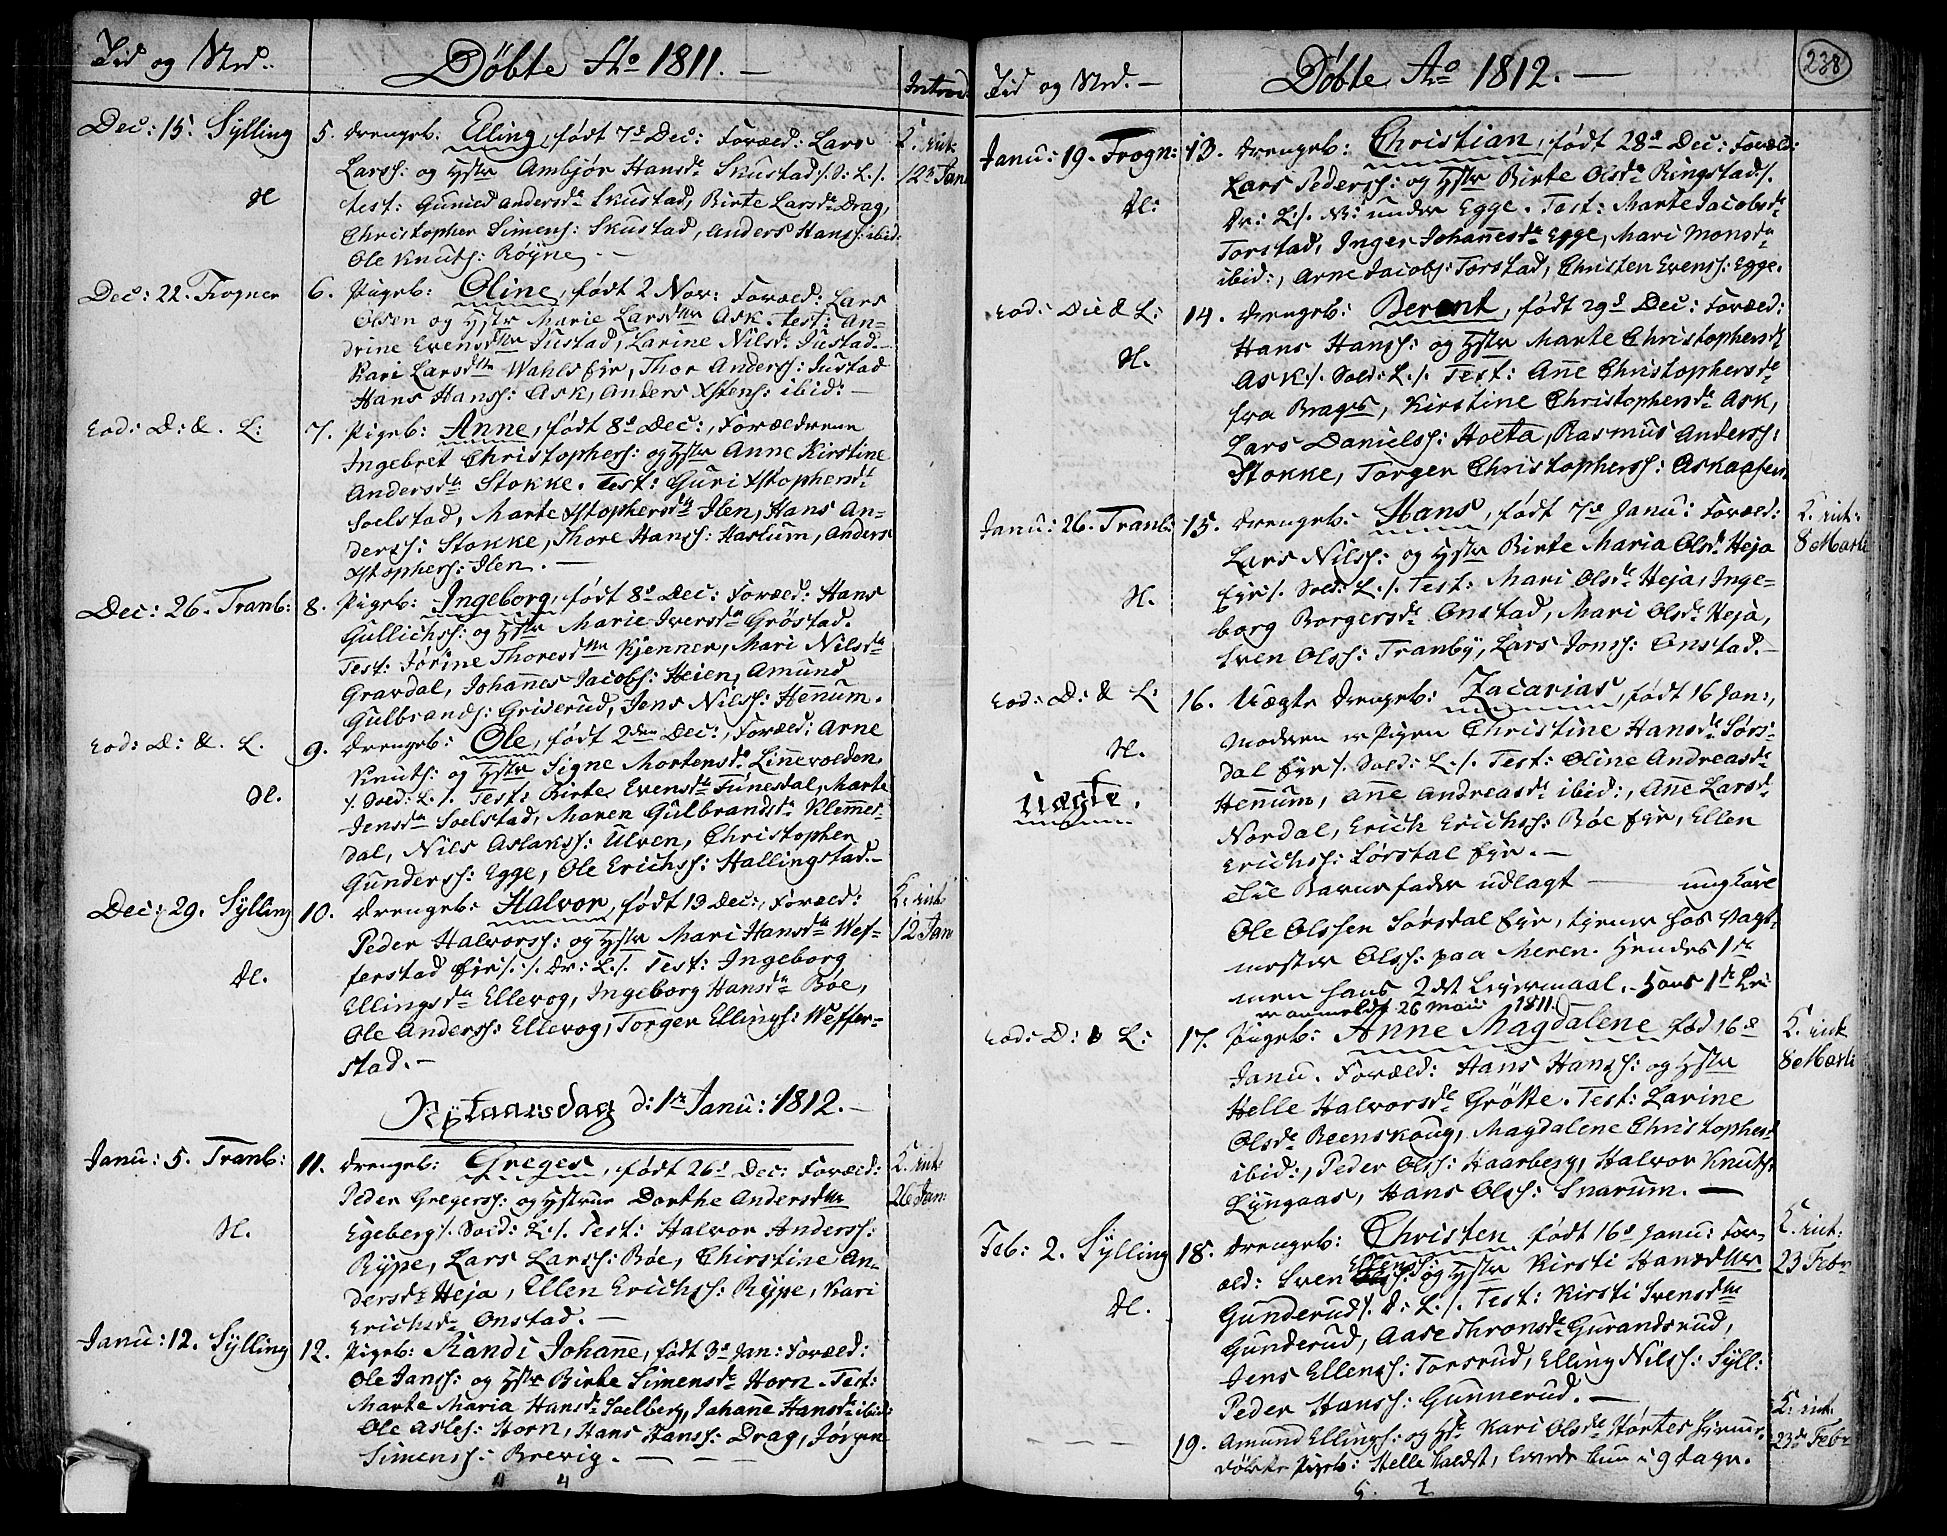 Tid og Sted.
Döbte Ao 1811.—
Introd:
Dec: 15. Sylling
5. Drengeb: Elling, født 7d Dec: Foræld: Lars
Larss: og Hstr Ambjör Hansdr Skustad /: S: L: /.
H
Test: Guned Andersdr Skustad, Birte Larsdr Drag,
Christopher Simens: Skustad, Anders Hanss: ibid:
Ole Knuts: Röyne.—
K: int:
12te Jan
Dec: 22. Frogner
6. Pigeb: Oline, født 2 Nov: Foræld: Lars
Olsen og Hstr Marie Larsdtr Ask. Test: An-
drine Evensdtr Justad, Larine Nilsdr Justad.
Kari Larsdtr Wahls Eie, Thor Anderss: Justad
Hans Hanss: Ask, Anders Xstens: ibid:—
Eod: D: & L:
7. Pigeb: Anne, født 8d Dec:, Forældrene
Ingebret Christophers: og Hstr Anne Kirstine
Andersdr Stokke. Test: Guri Xstophersdr
Soelstad, Marte Xstophersdr Ilen, Hans An-
derss: Stokke, Thore Hanss: Haslum, Anders
Xstophers: Ilen.—
Dec: 26. Tranb:
8. Pigeb: Ingeborg, født 8d Dec: Foræld: Hans
Gullichs: og Hstr Marie Iversdr Gröstad.
Test: Jörine Thoresdtr Kjenner, Mari Nilsdr
Gravdal, Johannes Jacobs: Heien, Amund
Gulbrands: Griserud, Jens Nilss: Henum.
Eod: D: & L.
9. Drengeb: Ole, født 2den Dec:, Foræld: Arne
Knuts: og Hstr Signe Mortensdr Linnevolden
H.
/. Sold: L: /. Test: Birte Evensdr Funesdal, Marte
Jensdr Soelstad, Maren Gulbrandsdr Klemmet-
dal, Nils Aslaks: Ulven, Christopher
Gunders: Egge, Ole Erichs: Hallingstad.—
Dec: 29. Sylling
10. Drengeb: Halvor, født 13 Dec:, Foræld:
Peder Halvors: og Hstr Mari Hansdr Wef-
H.
ferstad Eie /: /. Dr: L: /. Test: Ingeborg
Ellingsdr Ellevog, Ingeborg Hansdr Böe,
Ole Anders: Ellevog, Torger Ellings: Weffer-
stad.—
K: int:
12 Jan
Nÿtaarsdag d: 1te Janu: 1812.—
Janu: 5. Tranb:
11. Drengeb: Greges, født 26d Dec: Foræld:
Peder Gregers: og Hstrue Dorthe Andersdtr
H.
Egeberg /. Sold: L: /. Test: Halvor Anderss:
Rÿpe, Lars Larss: Böe, Chirstine An-
dersdr Heja, Ellen Erichs: Rÿpe, Kari
Erichsdr Onstad.—
K: int:
26 Jan:
Janu: 12. Sylling
12. Pigeb: Randi Johane, født 3d Jan: Foræld:
Ole Janss: og Hstr Birte Simensdr Horn. Test:
Marte Maria Hansdr Soelberg, Johane Hansdr ibid:
Ole Asles: Horn, Hans Hanss: Drag, Jörgen
Simenss: Brevig.—
4
Tid og Sted.—
Döbte Ao 1812.—
238
Janu: 19. Frogn:
13. Drengeb: Christian, født 28d Dec: Foræld:
Lars Peders: og Hstr Birte Olsdr Ringstad /.
H:
Dr: L: /. NB: under Egge. Test: Marte Jacobsdr
Torstad, Inger Johannesdr Egge, Mari Monsdr
ibid:, Arne Jacobs: Torstad, Christen Evens: Egge.
Eod: Die & L:
14. Drengeb: Berent, født 29d Dec: Foræld:
Hans Hanss: og Hstr Marte Christophersdr
H.
Ask /. Sold: L: /. Test: Ane Christophersdr
fra Bragnes, Kirstine Christophersdr Ask,
Lars Daniels: Hoeta, Rasmus Anderss:
Stokke, Torger Christophers: Askaasen.
Janu: 26. Tranb:
15. Drengeb: Hans, født 7d Janu: Foræld:
Lars Nilss: og Hstr Birte Maria Olsdr Heja
H.
Eie /. Sold: L: /. Test: Mari Olsdr Heja, Inge-
borg Borgersdr Onstad, Mari Olsdr Heja,
Sven Olss: Tranby, Lars Jonss: Onstad.—
K: int:
8 Marti
Eod: D: & L:
16. Uægte Drengeb: Zacarias, født 16 Jan:,
Moderen er Pigen Christine Hansdr Sörs-
H.
dal Eie /. Sold: L: /. Test: Oline Andreasdr
Uægte.
Henum, Ane Andreasdr ibid:, Ane Larsdr
Nordal, Erich Erichs: Böe Eie, Ellen
Erichs: Sörstal Eie.—
Til Barnefader udlagt — ungkarl
Ole Olssen Sörsdal Eie, tjener hos Vagt-
mester Olss: paa Meren. Hendes 1te
men hans 2det Leiermaal.— Hans 1te Lei:
er anmeldt 26 Maii 1811.
Eod: D: & L:
17. Pigeb: Anne Magdalene fød 16d
Janu. Foræld: Hans Hanss: og Hstr
Helle Halvorsdr Grötte. Test: Larine
Olsdr Reenskoug, Magdalene Christophersdr
ibid:, Peder Olss: Haarberg, Halvor Knuts:
Lÿngaas, Hans Olss: Snarum.—
K: int
8 Marti
Feb: 2. Sylling
18. Drengeb: Christen født 16d Janu: For-
æld: Sven Ellens: og Hstr Kirsti Hansdtr
H.
Gunderud /. D: L: /. Test: Kirsti Svensdtr
Gunderud, Aase Thronsdr Gurandsrud,
Jens Ellens: Torsrud, Elling Nilss: Syll:
Peder Hanss: Gunnerud.—
K: int:
23 Febr
— — —
19. Amund Ellings: og Hst: Kari Olsdr Störtes hjemme-
döbte Pigeb: Helle kaldet, levede kun i 9 dage.
K: int:
23d Febr